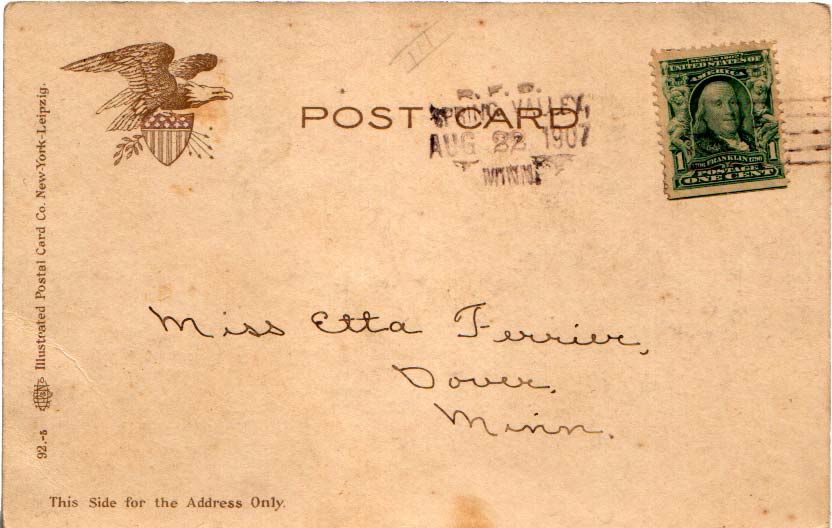 POST CARD
R.F.D.
SPRING VALLEY,
AUG 22 1907
MINN.
SERIES 1902
UNITED STATES OF
AMERICA
1 1706 FRANKLIN 1790 1
POSTAGE
ONE CENT
92.-5 Illustrated Postal Card Co. New-York-Leipzig.
Miss Etta Ferrier,
Dover,
Minn.
This Side for the Address Only.